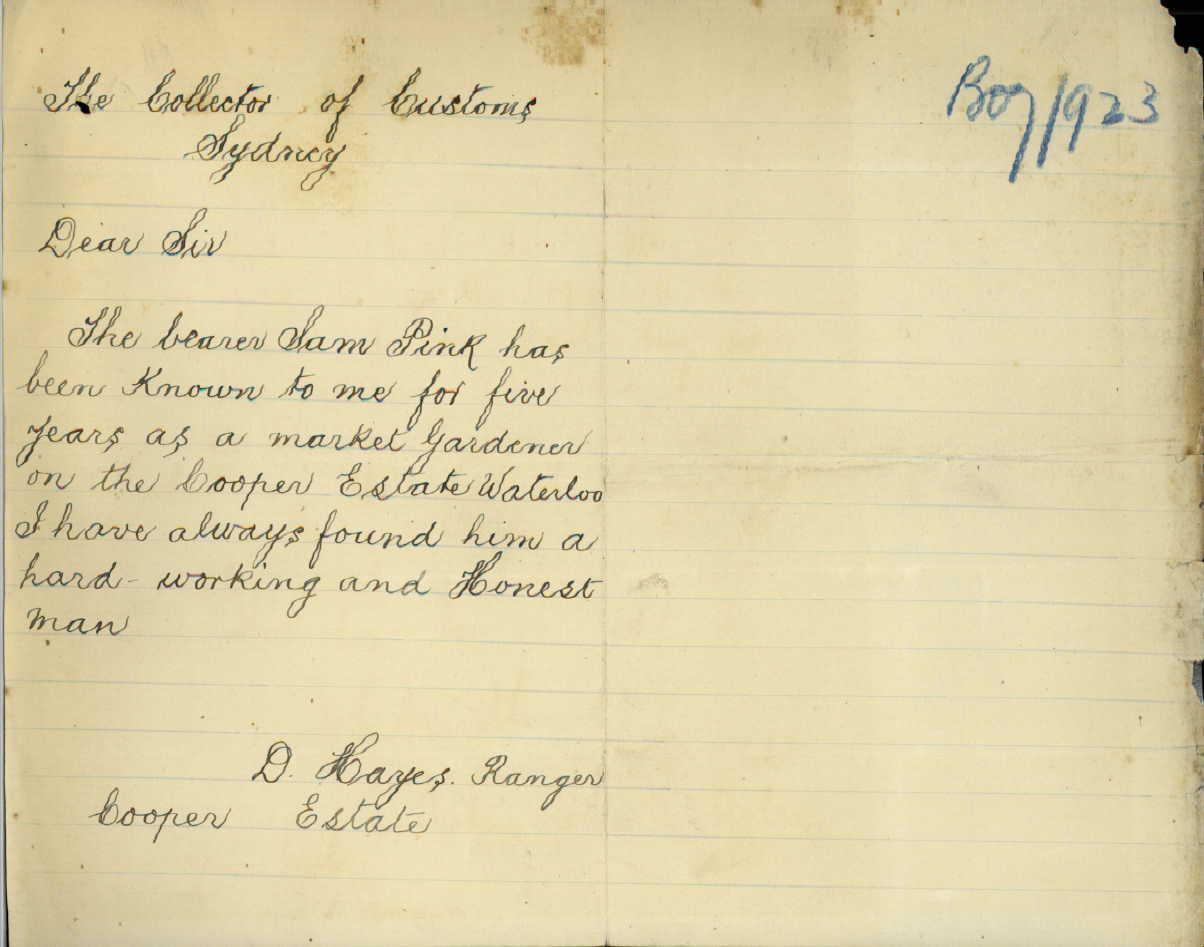 The Collector of Customs
Sydney
Dear Sir
The bearer Sam Pink has
been Known to me for five
years as a market Gardener
on the Cooper Estate Waterloo
I have always found him a
hard-working and Honest
man
D. Hayes. Ranger
Cooper Estate
/1923